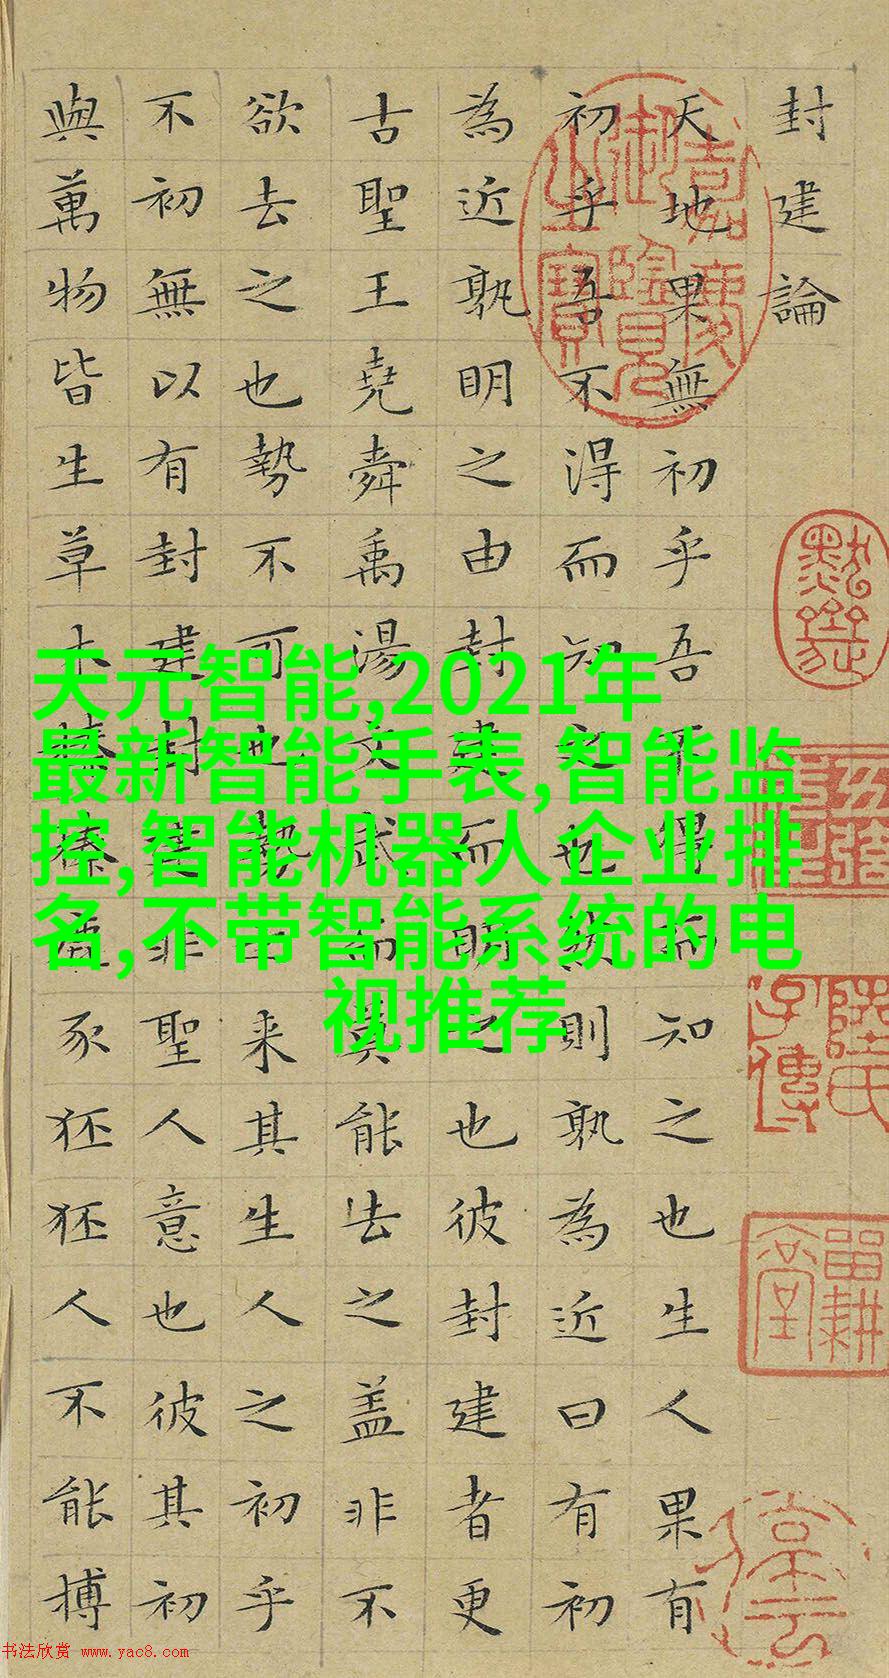 封建論
天地果無初乎吾不得而知之也生人果有
初乎吾不得而知之也然則孰為近曰有初
為近孰明之由封建而明之也彼封建者更
古聖王堯舜禹湯文武而莫能去之盖非不
欲去之也勢不可也勢之来其生人之初乎
不初無以有封建封建非聖人意也彼其初
與萬物皆生草木榛榛鹿豕狉狉人不能搏
嘉慶御覽之寶
天元智能,2021年
最新智能手表,智能监
控,智能机器人企业排
名,不带智能系统的电
视推荐
书法欣赏 www.yac8.com